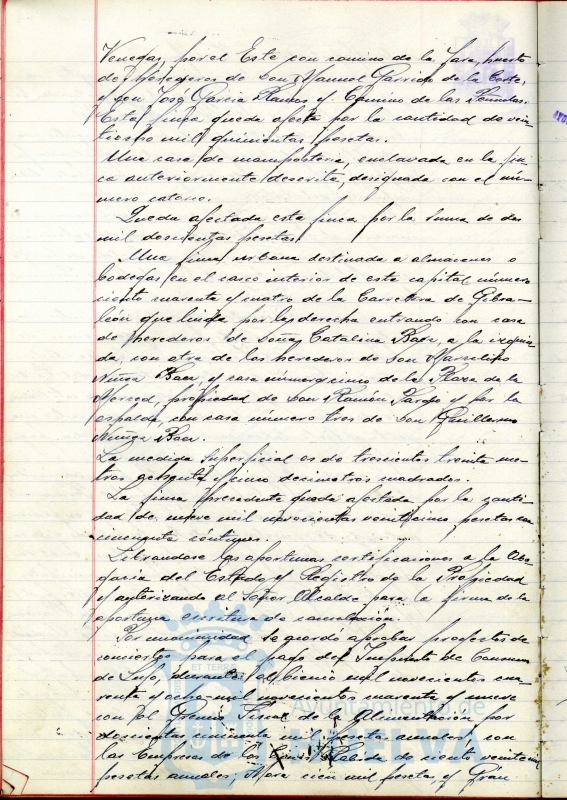 Venegas, por el Este con camino de la Jara, huerto
de herederos de Don Manuel Garrido de la Corte,
y con José Garcia Ramos y Camino de las
Esta finca queda afecta por la cantidad de vein-
tiocho mil quinientas pesetas.
Una casa de mamposteria, enclavada en la fin-
ca anteriormente descrita, designada con el nú-
mero catorce.
Queda afectada esta finca por la suma de dos
mil doscientas pesetas.
Una finca urbana destinada a almacenes o
bodegas en el casco interior de esta capital número
ciento cuarenta y cuatro de la Carretera de Gibra-
león que linda por la derecha entrando con casa
de herederos de Doña Catalina Baez, a la izquier-
da, con otra de los herederos de Don Marcelino
Nuñez Baez, y casa número cinco de la Plaza de la
Merced, propiedad de Don Ramón y por la
espalda, con casa número tres de Don Guillermo
Nuñez Baez.
La medida superficial es de trescientos treinta me-
tros y cinco decimetros cuadrados.
La finca precedente queda afectada por la canti-
dad de nueve mil novecientas veinticinco pesetas con
cincuenta céntimos.
Librandose las oportunas certificaciones a la Abo-
gacia del Estado y Registro de la Propiedad
y autorizando al Señor Alcalde para la firma de la
oportuna escritura de cancelación.
Por unanimidad se acordó aprobar proyectos de
conciertos para el pago del Impuesto de Consumos
de Lujo, durante el bienio mil novecientos cua-
renta y ocho-mil novecientos cuarenta y nueve
con el Gremio Fiscal de la Alimentación por
doscientas cincuenta mil pesetas anuales; con
las Empresas de los Cines Rabida de ciento veinte mil
pesetas anuales; Mora cien mil pesetas, y Gran
ET TERRAE
Ayuntamiento de
HUELVA